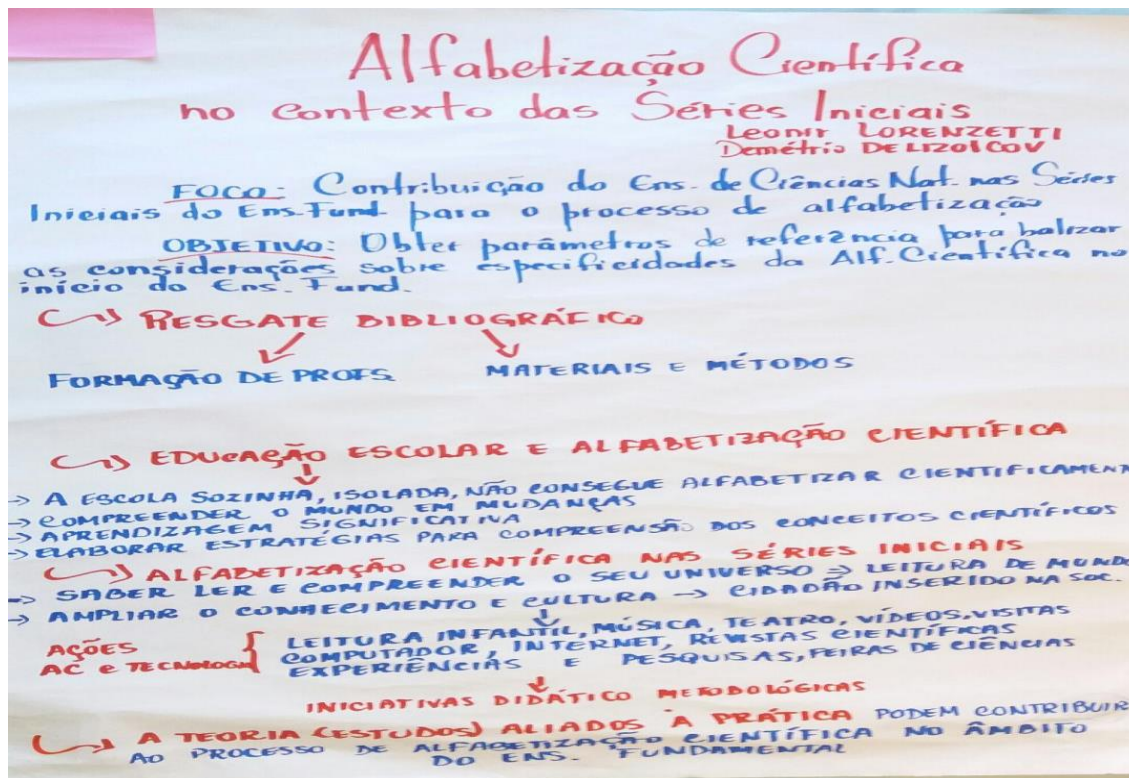 Alfabetização Científica
no contexto das Séries Iniciais
Leonir LORENZETTI
Demétrio DELIZOICOV
FOCO: Contribuição do Ens. de Ciências Nat. nas Séries
Iniciais do Ens. Fund. para o processo de alfabetização
OBJETIVO: Obter parâmetros de referência para balizar
as considerações sobre especificidades da Alf. Científica no
início do Ens. Fund.
RESGATE BIBLIOGRÁFICO
FORMAÇÃO DE PROFS. MATERIAIS E MÉTODOS
EDUCAÇÃO ESCOLAR E ALFABETIZAÇÃO CIENTÍFICA
→ A ESCOLA SOZINHA, ISOLADA, NÃO CONSEGUE ALFABETIZAR CIENTIFICAMENT
→ COMPREENDER O MUNDO EM MUDANÇAS
→ APRENDIZAGEM SIGNIFICATIVA
→ ELABORAR ESTRATÉGIAS PARA COMPREENSÃO DOS CONCEITOS CIENTÍFICOS
ALFABETIZAÇÃO CIENTÍFICA NAS SÉRIES INICIAIS
→ SABER LER E COMPREENDER O SEU UNIVERSO ⇒ LEITURA DE MUNDO
→ AMPLIAR O CONHECIMENTO E CULTURA → CIDADÃO INSERIDO NA SOC.
AÇÕES
AC e TECNOLOGIA
LEITURA INFANTIL, MÚSICA, TEATRO, VÍDEOS, VISITAS
COMPUTADOR, INTERNET, REVISTAS CIENTÍFICAS
EXPERIÊNCIAS E PESQUISAS, FEIRAS DE CIÊNCIAS
INICIATIVAS DIDÁTICO METODOLÓGICAS
A TEORIA (ESTUDOS) ALIADOS À PRÁTICA PODEM CONTRIBUIR
AO PROCESSO DE ALFABETIZAÇÃO CIENTÍFICA NO ÂMBITO
DO ENS. FUNDAMENTAL